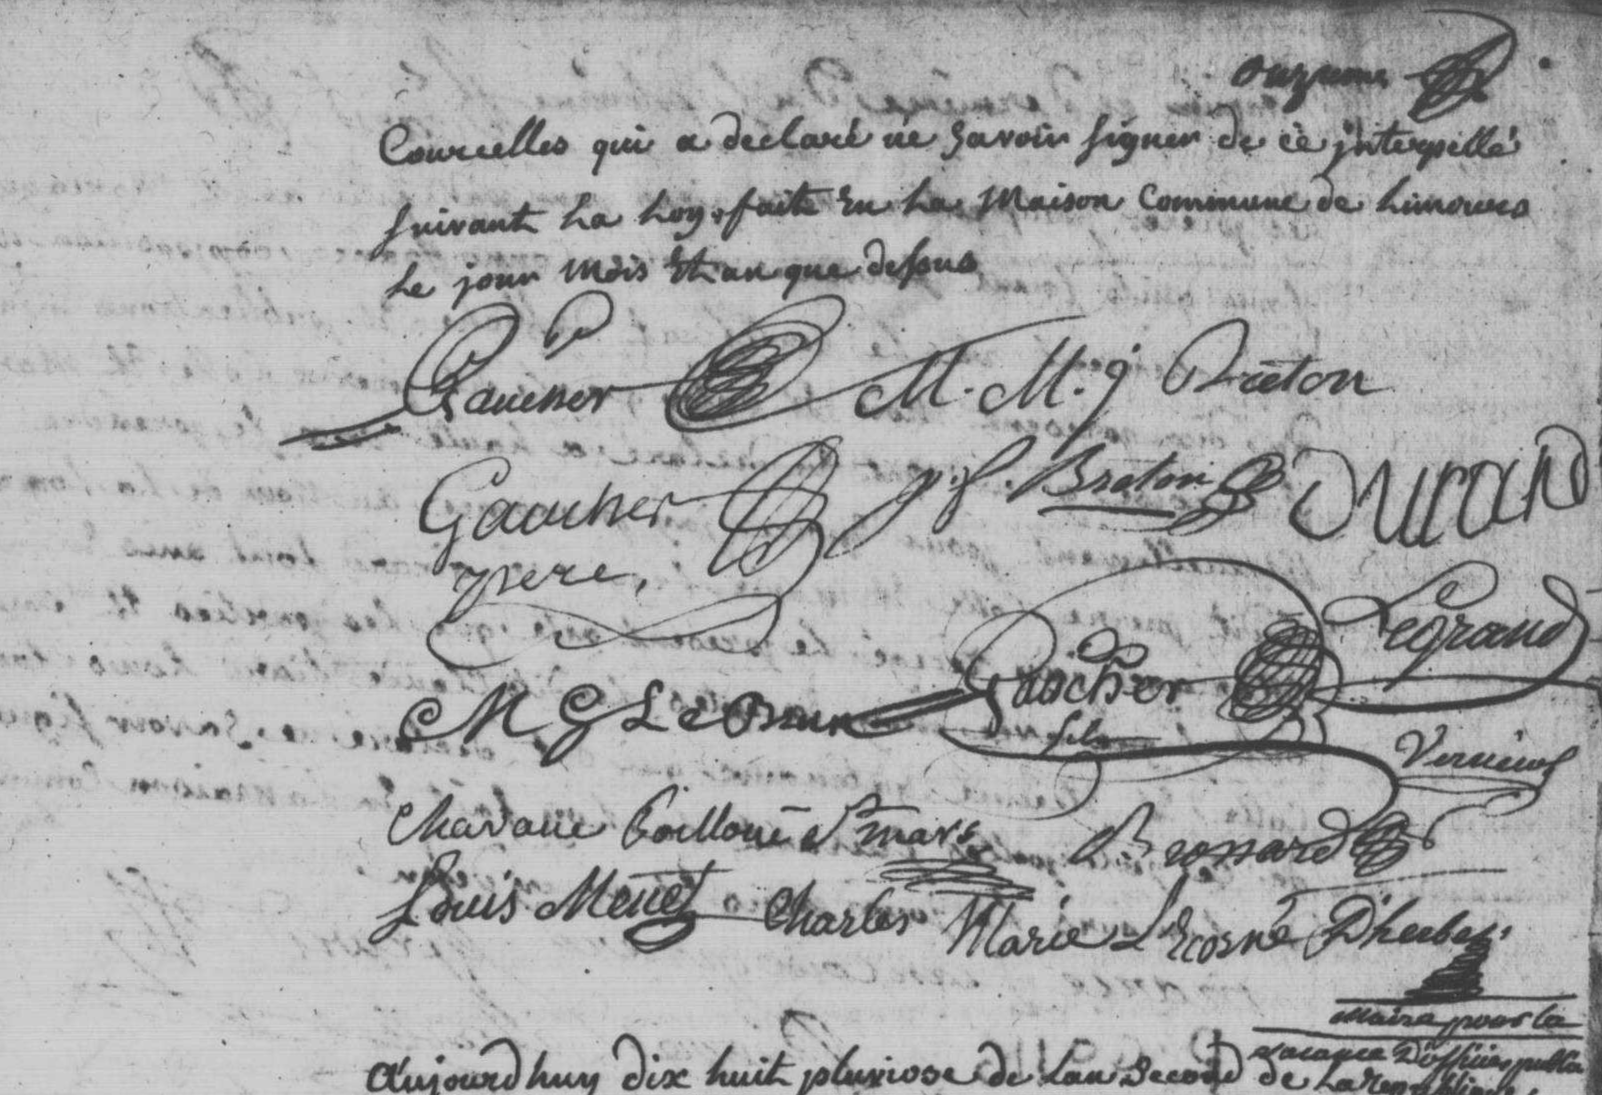 onzieme
Courcelles qui a declaré ne Savoir signer de ce jnterpellé
suivant La Loy, faite En La Maison Commune de Limours
Le jour mois Et an que dessus
Gaucher M. M. j Breton
Gaucher p. f. Breton Durand
pere,
Legrand
M G Le Brun Gaucher
fils
Verneuil
Chavane Poilloüe St mars Brossard
Louis Menet Charles Marie L'Ecorné D'herbes
Maire pour la
vacance D'officier public
Aujourdhuy dix huit pluviose de Lan Second de La Republique